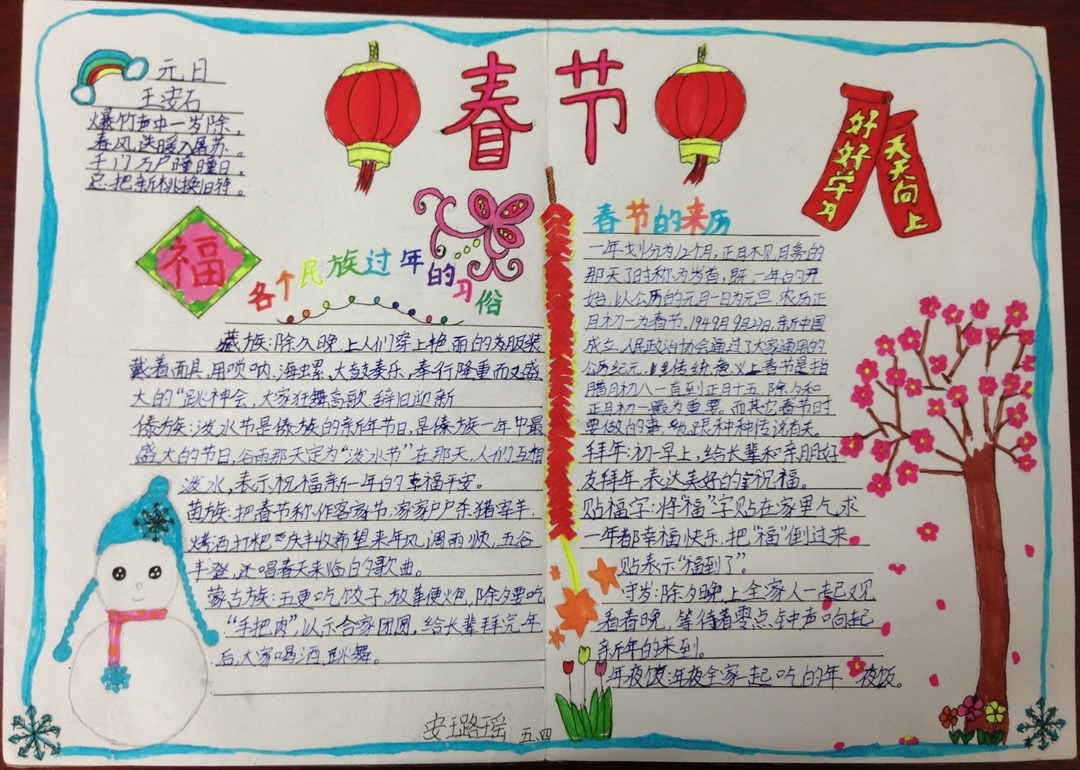 春节
元日
王安石
爆竹声中一岁除，
春风送暖入屠苏。
千门万户曈曈日，
总把新桃换旧符。
福
好好学习
天天向上
各个民族过年的习俗
藏族：除夕晚上人们穿上艳丽的为服装
戴着面具，用唢呐、海螺、大鼓奏乐，奉行隆重而又盛
大的“跳神会，大家狂舞高歌 辞旧迎新
傣族：泼水节是傣族的新年节日，是傣族一年中最
盛大的节日，谷雨那天定为“泼水节”在那天，人们互相
泼水，表示祝福新一年的幸福平安。
苗族：把春节称作客家节，家家户户杀猪宰羊，
烤酒打粑 庆丰收希望来年风调雨顺，五谷
丰登，还唱春天来临白的歌曲。
蒙古族：五更吃饺子，放鞭便火包，除夕要吃
“手把肉”，以示合家团圆，给长辈拜完年
后，大家喝酒、跳舞。
春节的来历
一年划分为12个月，正月不见月亮的
那天了时称为岁首，既一年的开
始，以公历的元月一日为元旦 农历正
月初一为春节，1949月9月27日，新中国
成立，人民政治协会通过了大家通用的
公历纪元，传统意义上春节是指
腊月初八一直到正月十五，除夕和
正月初一最为重要。而其它春节时
要做的事 跟种种传说有关。
拜年：初一早上，给长辈和亲朋好
友拜年，表达美好的祝福。
贴福字：将“福”字贴在家里气求
一年都幸福快乐，把“福”倒过来
贴表示“福到了”。
守岁：除夕晚上全家人一起又见
看春晚，等待着零点钟声响起
新年的来到。
年夜饭：年夜全家一起吃的年夜饭。
安珏路瑶 五.四